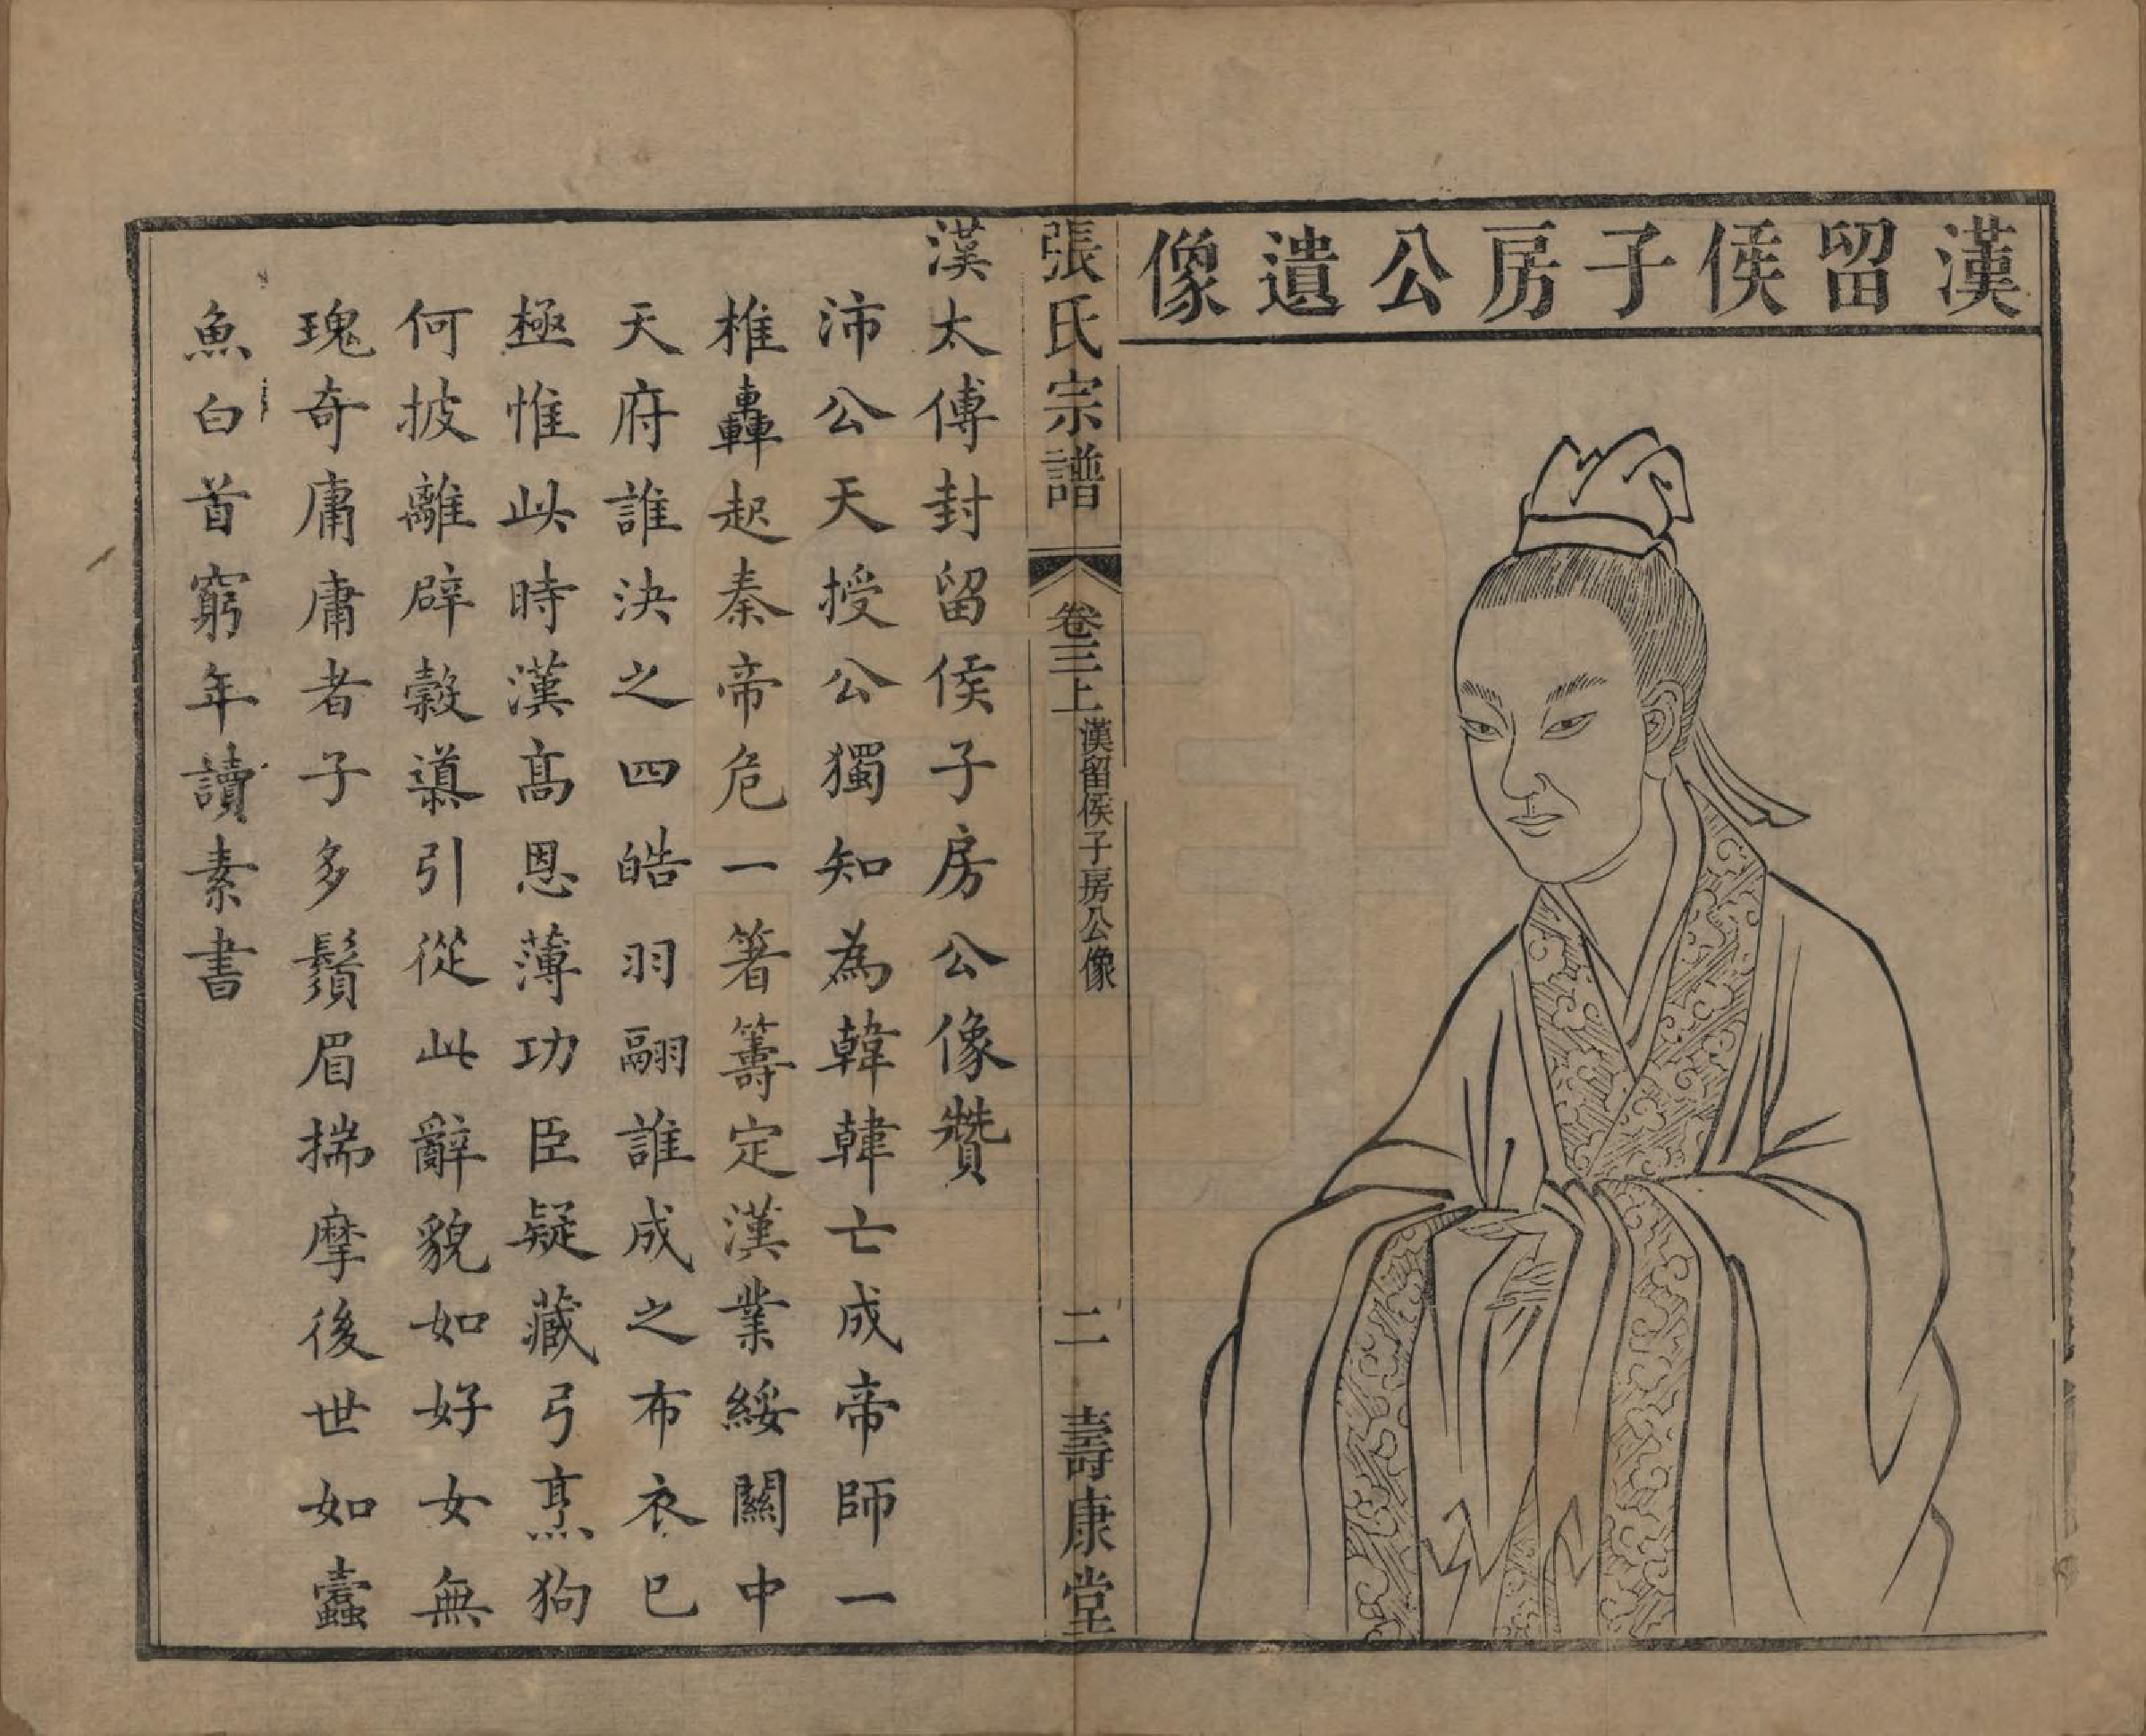 漢留侯子房公遺像
張氏宗譜
卷三上
漢留侯子房公像
二
壽康堂
漢太傅封留侯子房公像贊
沛公天授公獨知為韓韓亡成帝師一
椎轟起秦帝危一箸籌定漢業綏關中
天府誰決之四皓羽翮誰成之布衣已
極惟此時漢高恩薄功臣疑藏弓烹狗
何披離辟穀導引從此辭貌如好女無
瑰奇庸庸者子多鬚眉揣摩後世如蠹
魚白首窮年讀素書